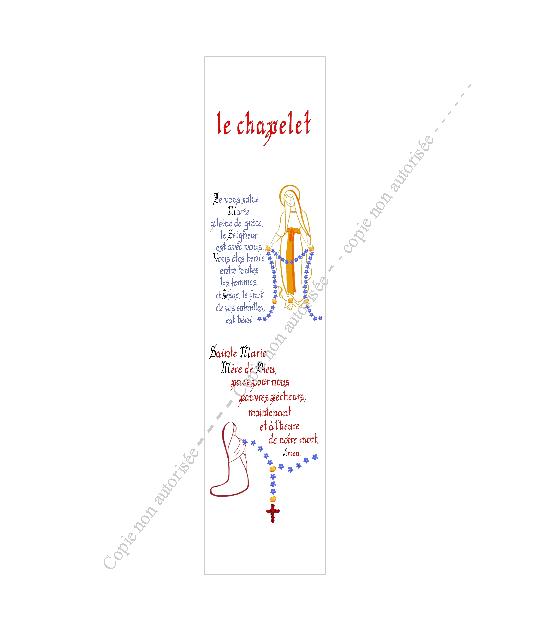 le chapelet
Je vous salue
Marie
pleine de grâce,
le Seigneur
est avec vous.
Vous êtes bénie
entre toutes
les femmes
et Jésus, le fruit
de vos entrailles,
est béni.
Sainte Marie
Mère de Dieu,
priez pour nous
pauvres pécheurs,
maintenant
et à l'heure
de notre mort.
Amen.
Copie non autorisée --- Copie non autorisée --- copie non autorisée ---